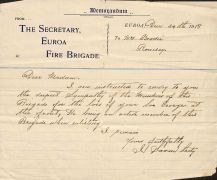 Memorandum
EUROA, Dec 24th 1918
FROM
THE SECRETARY,
EUROA
FIRE BRIGADE.
To Mrs
Dear Madam
I am instructed to convey to you
the deepest sympathy of the members of this
Brigade for the loss of your son George at
the front, he being an active member of this
Brigade when enlisting
I remain
Yours faithfully